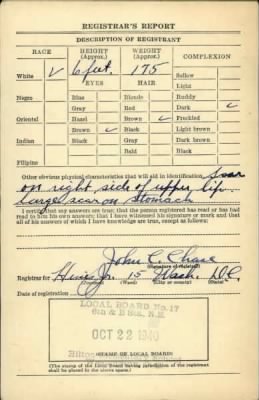 REGISTRAR'S REPORT
DESCRIPTION OF REGISTRANT
RACE HEIGHT (Approx.) WEIGHT (Approx.) COMPLEXION
6 feet 175 Sallow
White ✓ EYES HAIR Light
Negro Blue Blonde Ruddy
Gray Red Dark ✓
Oriental Hazel Brown ✓ Freckled
Brown ✓ Black Light brown
Indian Black Gray Dark brown
Bald Black
Filipino
Other obvious physical characteristics that will aid in identification Scar
on right side of upper lip.
Large scar on stomach
I certify that my answers are true; that the person registered has read or has had
read to him his own answers; that I have witnessed his signature or mark and that
all of his answers of which I have knowledge are true, except as follows:
John C. Chase
(Signature of registrar)
Registrar for 15 Wash. D.C.
(Precinct) (Ward) (City or county) (State)
Date of registration
LOCAL BOARD No. 17
6th & D Sts. N.E.
OCT 22 1940
(STAMP OF LOCAL BOARD)
(The stamp of the Local Board having jurisdiction of the registrant
shall be placed in the above space.)